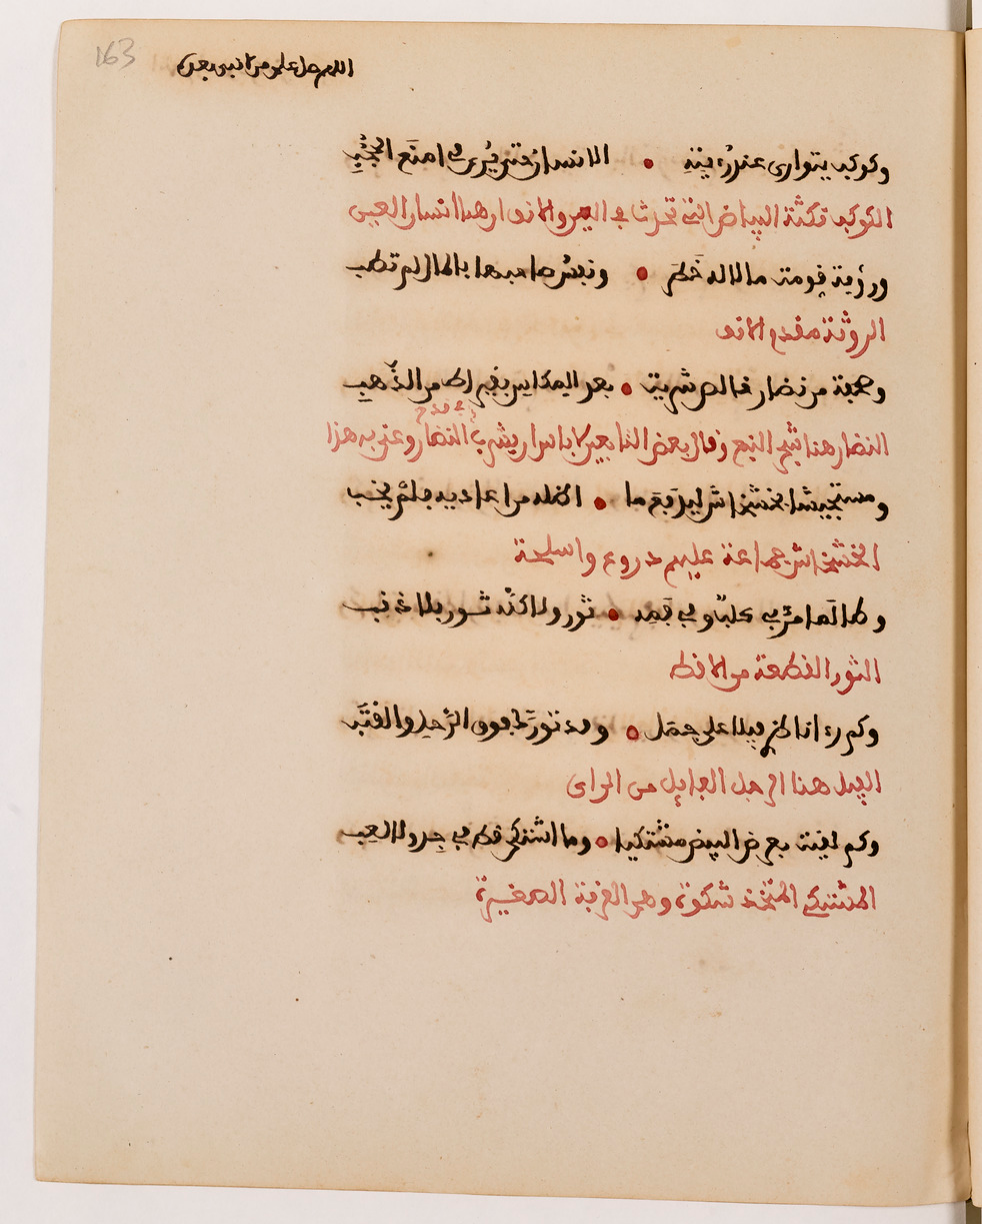 163
اللهم صل على من لا نبي بعده
وكوكب يتوارى عند رؤيته • الانسان حتى يرى في امنع الحجب
الكوكب نكتة البياض التي تحدث في العين والانسان هنا انسان العين
وروثة قومت مالا له خطر • ونفس صاحبها بالمال لم تطب
الروثة مقدم الانف
وصحفة من نضار خالص شريت • بعد المكاس بقيراط من الذهب
النضار هنا شجر النبع وقال بعض التابعين لا باس ان يشرب في قدح النضار وعنى به هذا
ومستجيشا بخشخاش ليدفع ما • اظله من اعاديه فلم يخب
الخشخاش جماعة عليهم دروع واسلحة
وطالما مر بي كلب وفي فمه • ثور ولاكنه ثور بلا ذنب
الثور القطعة من الاقط
وكم رءا ناظري فيلا على جمل • وقد تورك فوق الرحل والقتب
الفيل هنا الرجل الفايل من الراي
وكم لقيت بعرض البيد مشتكيا • وما اشتكى قط في جد ولا لعب
المشتكي المتخذ شكوة وهي القربة الصغيرة